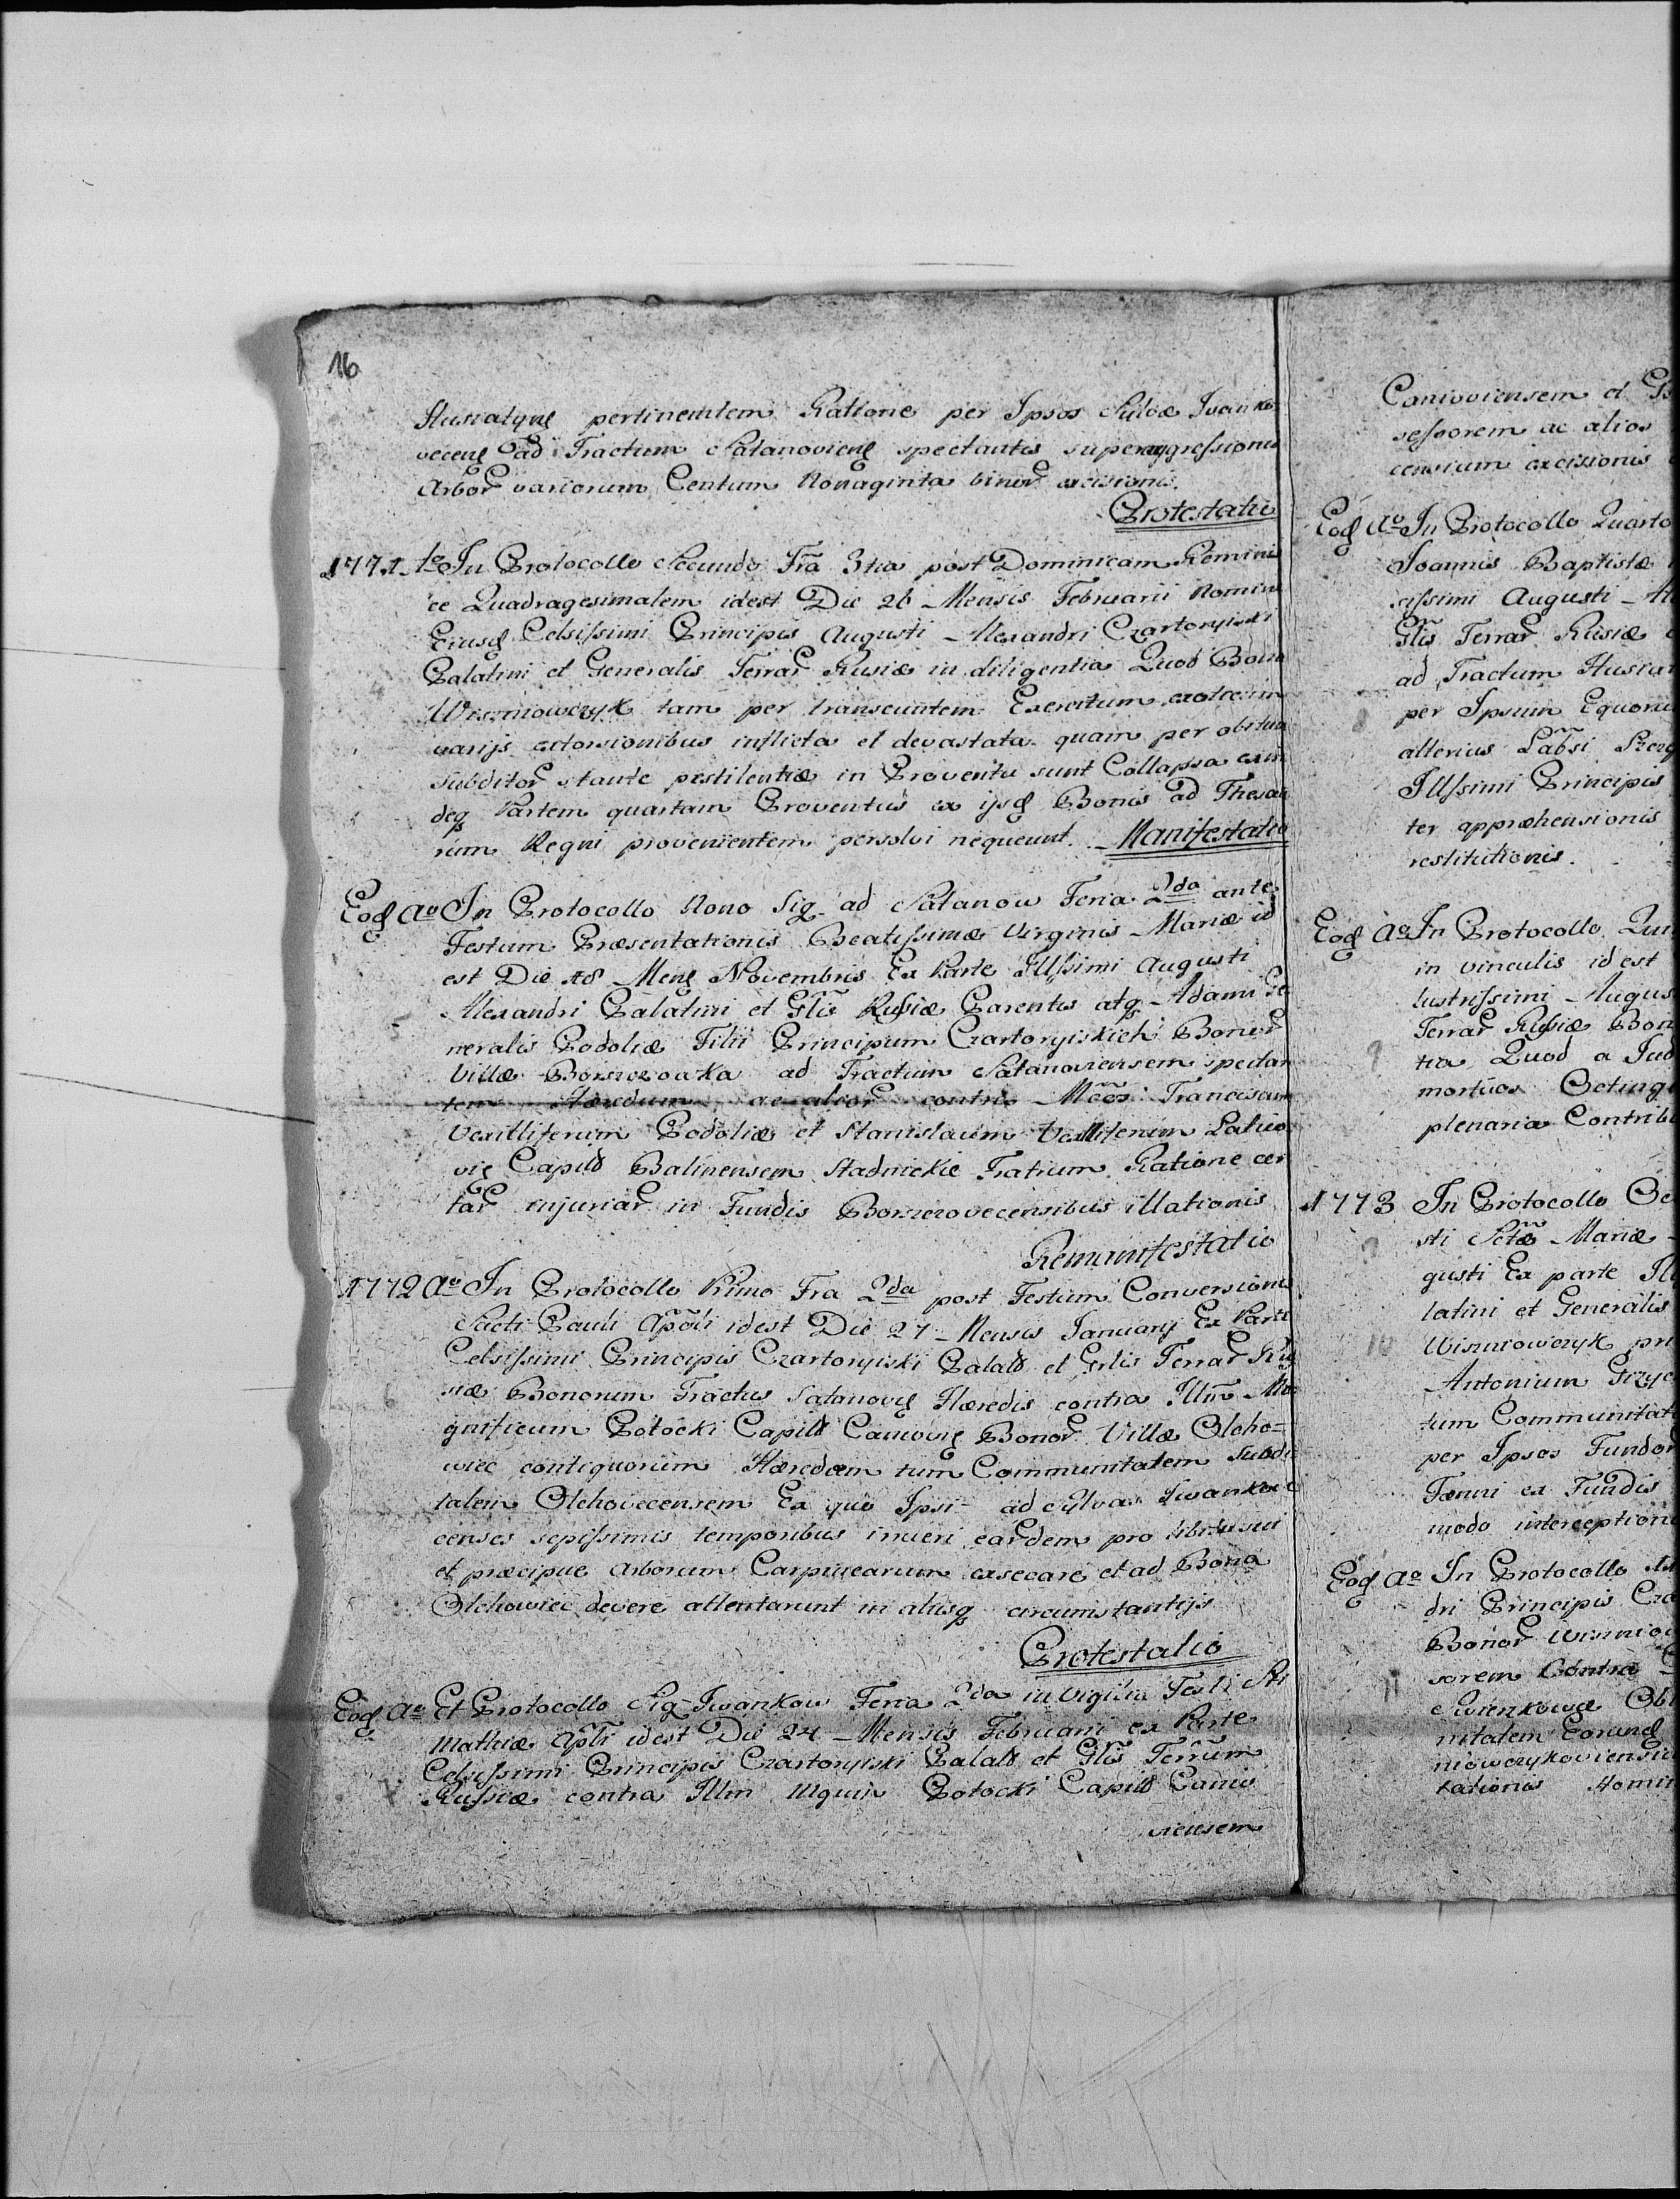 16
Husiatyn pertinentem Ratione per Ipsos Sylvæ Iwanko
vecens ad Tractum Satanoviens spectantis superaggressionis
Arbor variorum Centum Nonaginta binor excisionis.
Protestatio
1771 In Protocollo Secundo Fra 3tia post Dominicam Reminis
ce Quadragesimalem idest Die 26 Mensis Februarii Nomine
Ejusd Celsissimi Principis Augusti Alexandri Czartoryiski
Palatini et Generalis Terrar Rusiæ in diligentia Quod Bona
Wiszniowczyk tam per transeuntem Exercitum
varijs extorsionibus inflicta et devastata quam per obitum
Subditor stante pestilentiæ in Proventu sunt Collapsa
deq Partem quartam Proventus ex ijsd Bonis ad Thesau
rum Regni provenientem persolvi nequeunt. Manifestatio
Eod Ao In Protocollo Nono Sig ad Satanow Feria 2da ante
Festum Præsentationis Beatissimæ Virginis Mariæ id
est Die 18 Mens Novembris Ex Parte Illssimi Augusti
Alexandri Palatini et Glis Russiæ Parentis atq Adami Ge
neralis Podoliæ Filii Principum Czartoryiskich Bonor
Villæ ad Tractum Satanoviensem spectan
tem Hæredum ac alior contra Mcos Franciscum
Vexilliferum Podoliæ et Stanislaum Vexilliferum Latico
vis Capitd Balinensem Stadnickie Fratrum Ratione cer
tar injuriar in Fundis illationis
Remanifestatio
1772 Ao In Protocollo Primo Fra 2da post Festum Conversionis
Scti Pauli Apõli idest Die 27 Mensis Januarij Ex Parte
Celsissimi Principis Czartoryiski Palatd et Grlis Terrar Rus
siæ Bonorum Tractus Satanovs Hæredis contra Illm Ma
gnificum Potocki Capitd Caniovis Bonor Villæ Olcho=
wiec contiquorum Hæredem tum Communitatem Subdi
talem Olchovecensem Ex quo Ipsi ad sylvas Iwankove
censes sepissimis temporibus inveri eardem pro libitu sui
et præcipue Arborum Carpinearum exsecare et ad Bona
Olchowiec devere attentarunt in aliisq circumstantijs
Protestatio
Eod Ao Et Protocollo Sig Iwankow Feria 2da in Vigilia Festi Sti
Mathiæ Apli idest Die 24 Mensis Februarii ex Parte
Celsissimi Principis Czartoryiski Palatd et Glis Terrum
Russiæ contra Illm Mgnum Potocki Capitd Canio
viensem
Canioviensem et
sessorem ac alios
censium excisionis
Eod Ao In Protocollo Quarto
Joannis Baptistæ
sissimi Augusti
Glis Terrar Rusiæ
ad Tractum Husiat
per Ipsum Equorum
alterius Labsi
Illssimi Principis
ter appræhensionis
restitutionis.
Eod Ao In Protocollo Quin
in vinculis id est
lustrissimi Augus
Terrar Russiæ Bon
tia Quod a
mortuos Octinge
plenaria Contribu
1773 In Protocollo Oc
sti Sctæ Mariæ
gusti Ex parte Ill
latini et Generalis
Wiszniowczyk
Antonium
tum Communitat
per Ipsos Fundor
Fænni ex Fundis
modo interceptione
Eod Ao In Protocollo
dri Principis Cza
Bonor
sorem Contra
nitatem Eorund
tationis
5
6
8
9
10
11